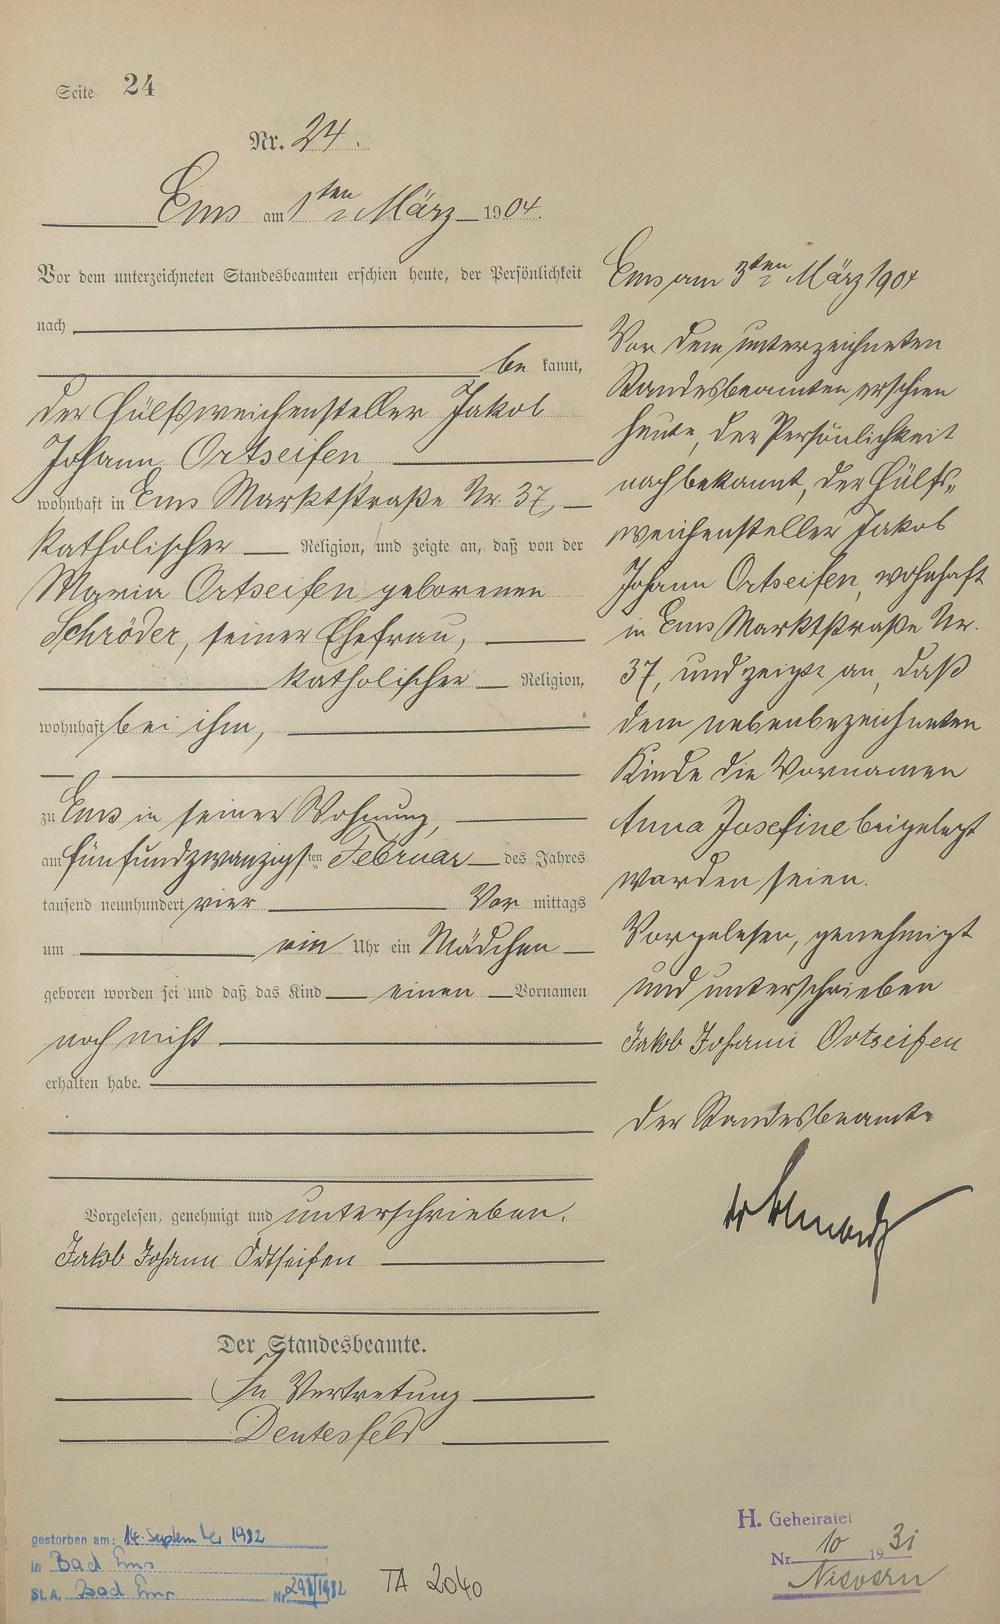 Seite 24
Nr. 24.
Ems am 1ten März 1904.
Vor dem unterzeichneten Standesbeamten erschien heute, der Persönlichkeit
nach
be kannt,
der Hülfsweichensteller Jakob
Johann Ortseifen
wohnhaft in Ems Marktstraße Nr. 37,
katholischer Religion, und zeigte an, daß von der
Maria Ortseifen geborenen
Schröder, seiner Ehefrau,
katholischer Religion,
wohnhaft bei ihm,
zu Ems in seiner Wohnung,
am fünfundzwanzigsten Februar des Jahres
tausend neunhundert vier Vor mittags
um ein Uhr ein Mädchen
geboren worden sei und daß das Kind einen Vornamen
noch nicht
erhalten habe.
Vorgelesen, genehmigt und unterschrieben.
Jakob Johann Ortseifen
Der Standesbeamte.
In Vertretung
Ems am 3ten März 1904
Vor dem unterzeichneten
Standesbeamten erschien
heute, der Persönlichkeit
nach bekannt, der Hülfs„
weichensteller Jakob
Johann Ortseifen, wohnhaft
in Ems Marktstraße Nr.
37, und zeigte an, daß
dem nebenbezeichneten
Kinde die Vornamen
Anna Josefine beigelegt
worden seien.
Vorgelesen, genehmigt
und unterschrieben
Jakob Johann Ortseifen
Der Standesbeamte
gestorben am: 14. September 1982
in Bad Ems
St. A. Bad Ems Nr. 1982
TA 2040
H. Geheiratet
Nr. 10 1931
Nievern